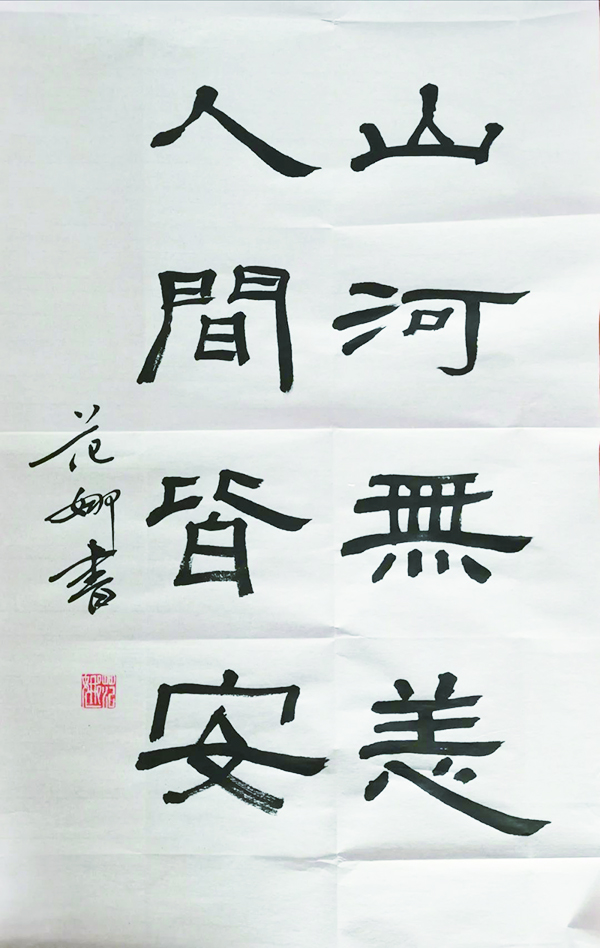 山河無恙
人間皆安
范娜書